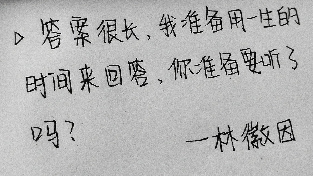 ▷ 答案很长，我准备用一生的
时间来回答，你准备要听了
吗？
—林徽因